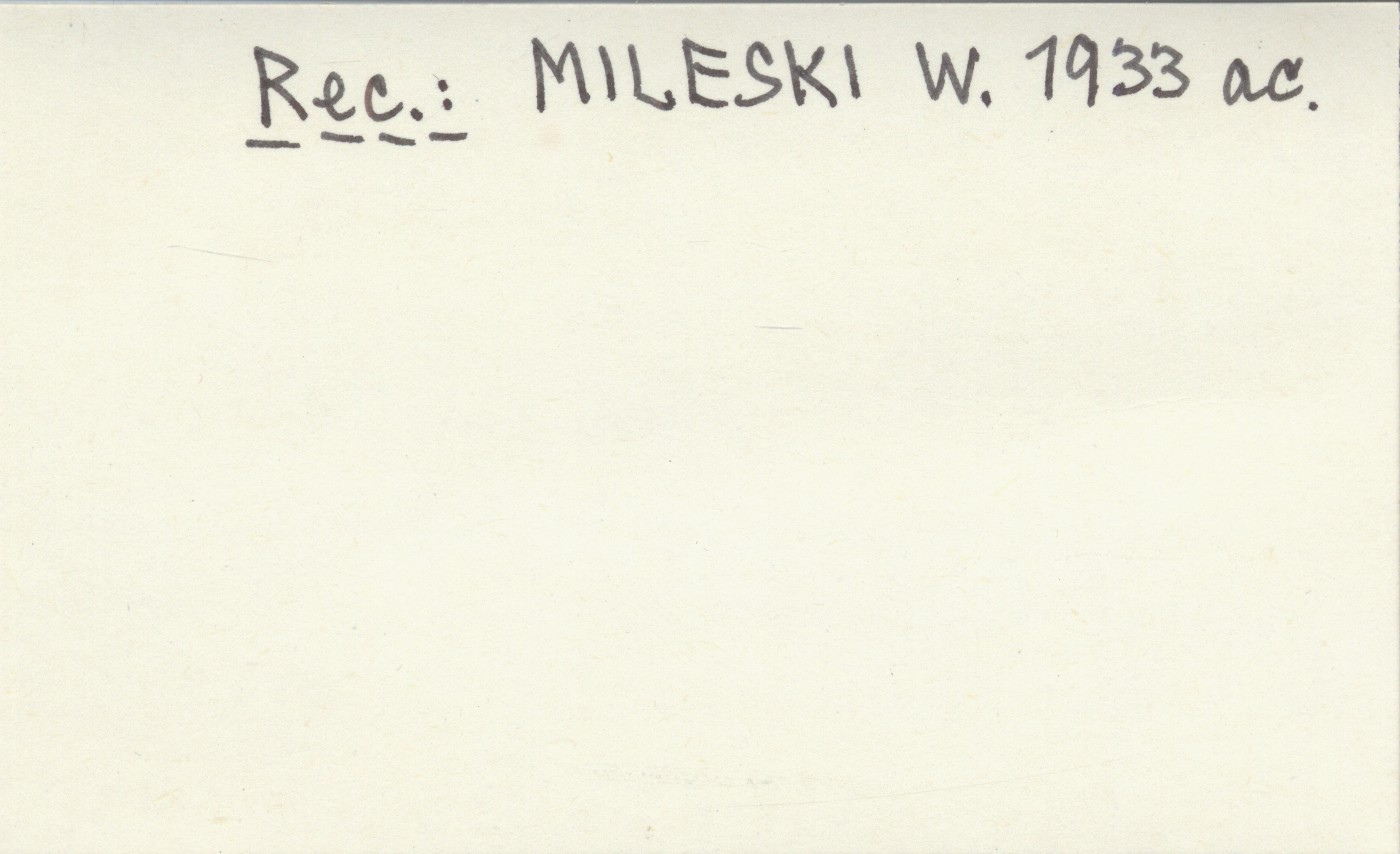 Rec.: MILESKI W. 1933 ac.